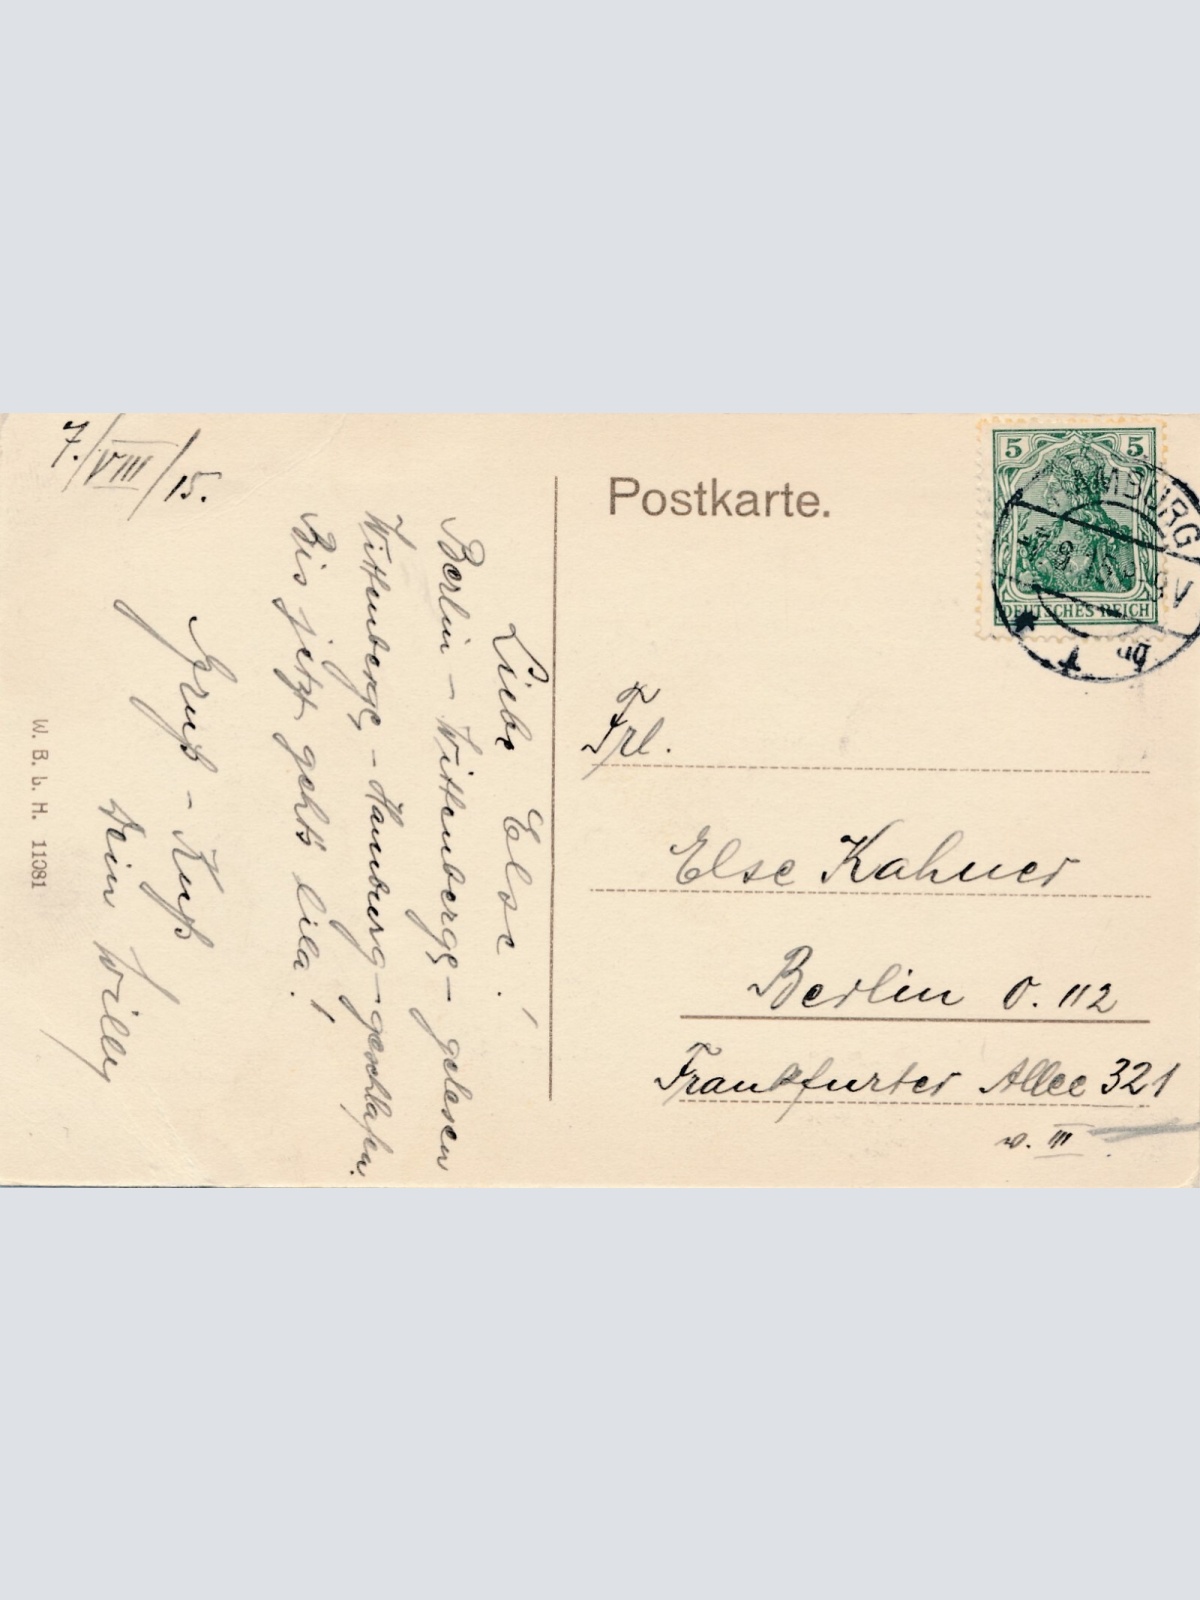 7./VIII/15.
Liebe Else!
Berlin - Wittenberge - gelesen
Wittenberge - Hamburg - geschlafen.
Bis jetzt geht's lila!
Gruß - Kuß
Dein Willy
W. B. L. H. 11081
Postkarte.
5 5
DEUTSCHES REICH
HAMBURG
Frl.
Else Kahner
Berlin O. 112
Frankfurter Allee 321
v. III